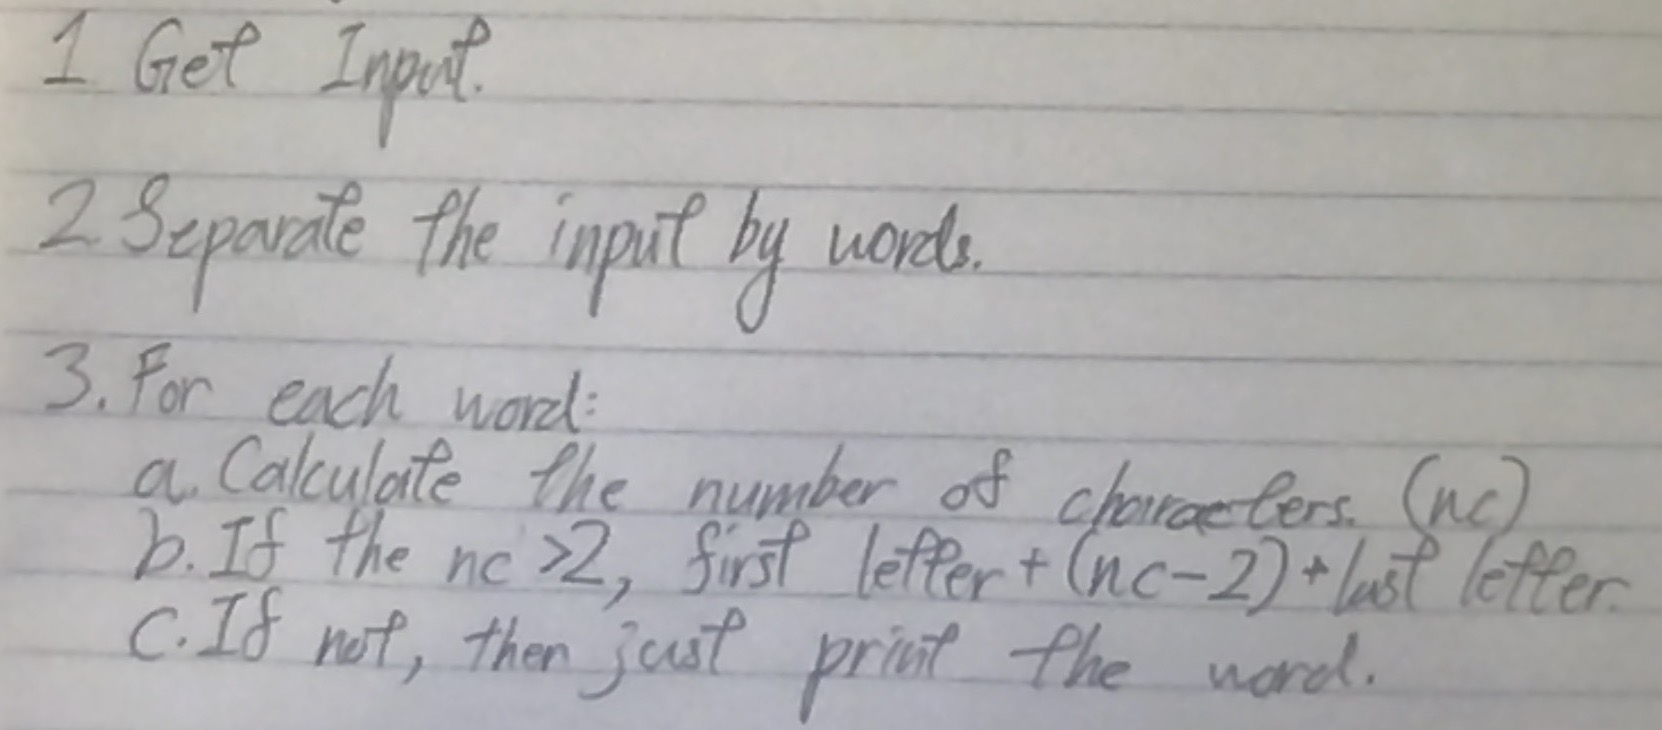 1 Get Input.
2. Separate the input by words.
3. For each word:
a. Calculate the number of characters. (nc)
b. If the nc >2, first letter + (nc-2) + last letter.
c. If not, then just print the word.